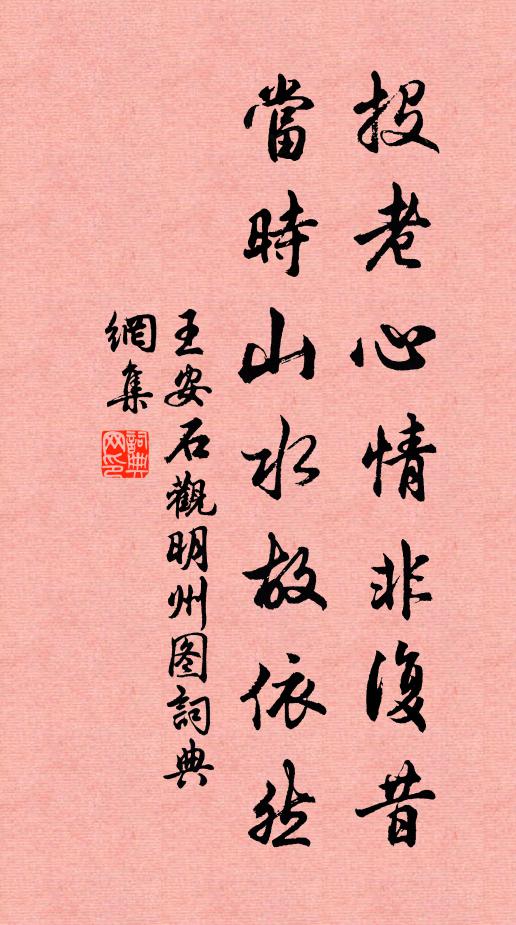 投老心情非復昔
當時山水故依然
王安石觀明州图詞典
網集
詞典
网印